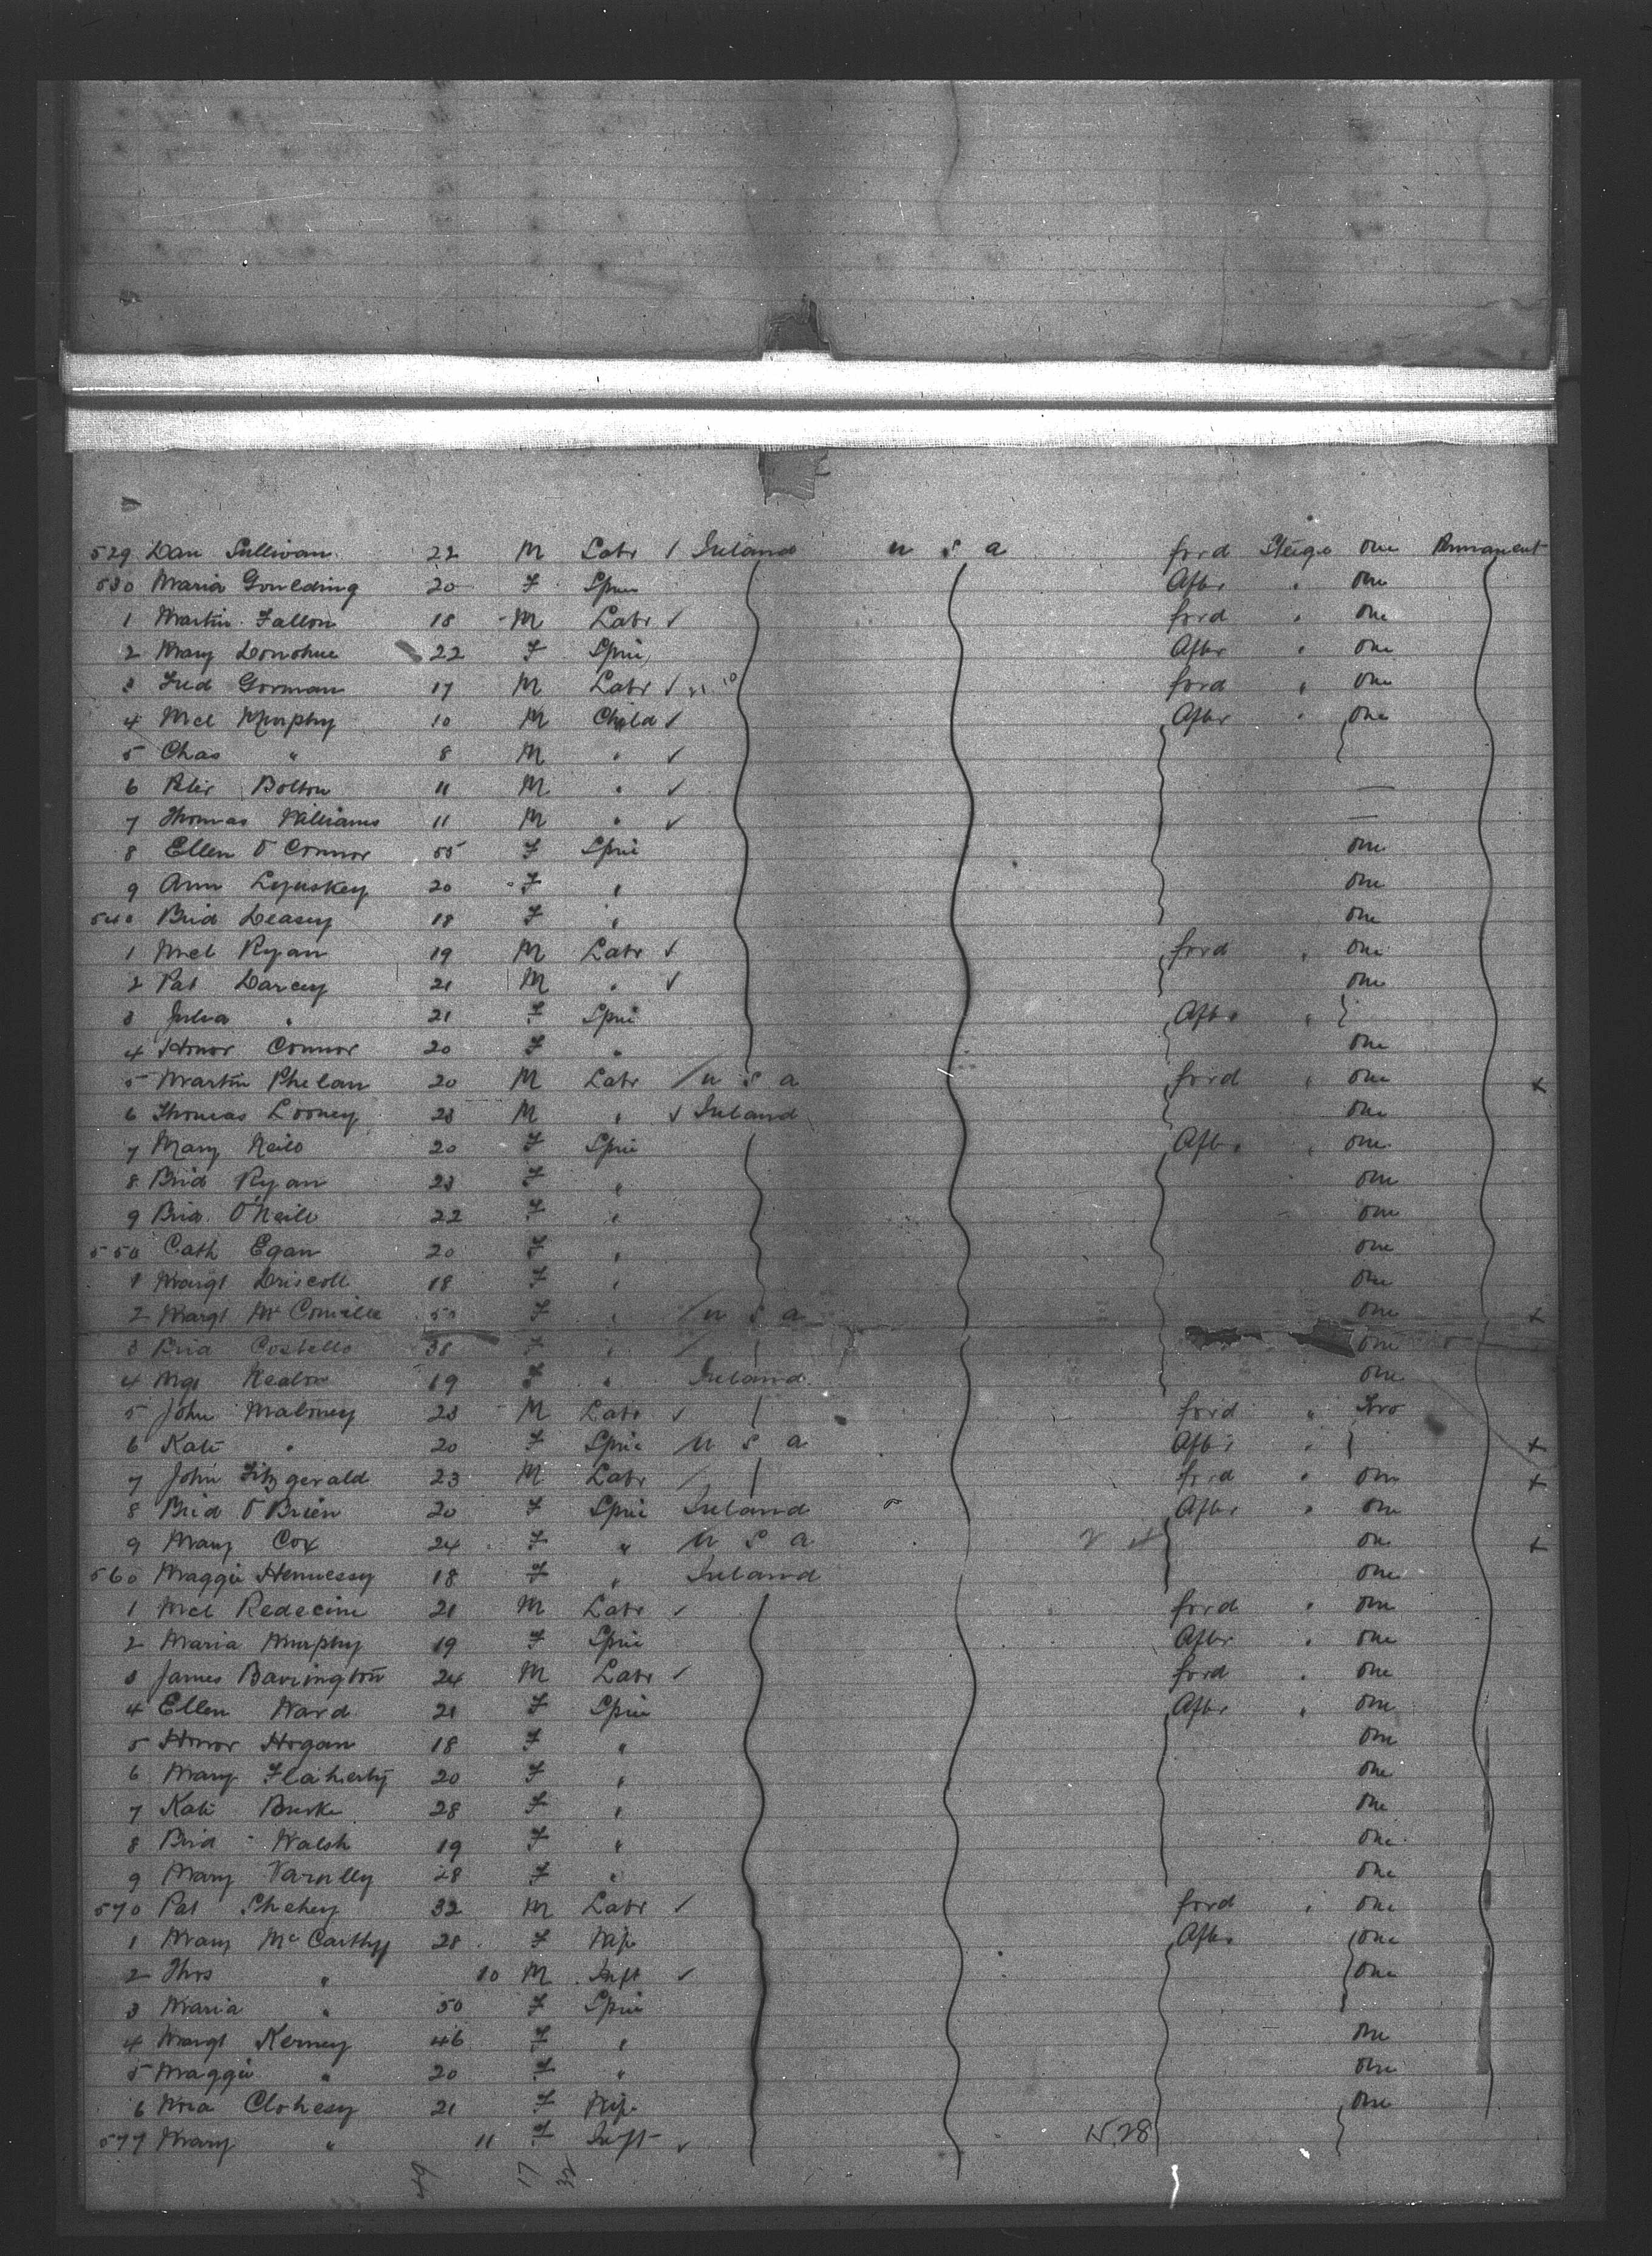 529 Dan Sullivan 22 M Labr ✓ Ireland U S A ford Steige one Permanent
530 Maria Goulding 20 F Spin Aftr " one
1 Martin Fallon 18 M Labr ✓ ford " one
2 Mary Donohue 22 F Spin Aftr " one
3 Fred Gorman 17 M Labr ✓ ford " one
4 Mcl Murphy 10 M Child ✓ Aftr " one
5 Chas " 8 M " ✓
6 Peter Bolton 11 M " ✓ —
7 Thomas Williams 11 M " ✓ —
8 Ellen O Connor 55 F Spin one
9 Ann Lyuskey 20 F " one
540 Brid Deasey 18 F " one
1 Mcl Ryan 19 M Labr ✓ ford " one
2 Pat Darcey 21 M " ✓ one
3 Julia " 21 F Spin Aftr "
4 Honor Connor 20 F " one
5 Martin Phelan 20 M Labr / U S A ford " one x
6 Thomas Looney 23 M " ✓ Ireland one
7 Mary Neilo 20 F Spin Aftr " one
8 Brid Ryan 23 F " one
9 Brid O'Neill 22 F " one
550 Cath Egan 20 F " one
1 Margt Driscoll 18 F " one
2 Margt McConville 50 F " / U S A one x
3 Brid Costello 38 F " / one
4 Mgt Nealon 19 F " Ireland one
5 John Maloney 23 M Labr ✓ ford " Two
6 Kate " 20 F Spin U S A Aftr " x
7 John Fitzgerald 23 M Labr / ford " one x
8 Brid O Brien 20 F Spin Ireland Aftr " one
9 Mary Cox 24 F " U S A one x
560 Maggie Hennessy 18 F " Ireland one
1 Mcl Redecine 21 M Labr ✓ ford " one
2 Maria Murphy 19 F Spin Aftr " one
3 James Barrington 24 M Labr ✓ ford " one
4 Ellen Ward 21 F Spin Aftr " one
5 Honor Hogan 18 F " one
6 Mary Flaherty 20 F " one
7 Kate Burke 28 F " one
8 Brid Walsh 19 F " one
9 Mary Varilly 28 F " one
570 Pat Shehey 32 M Labr ✓ ford " one
1 Mary McCarthy 28 F Wife Aftr one
2 Thos " 10 M Inft ✓ one
3 Maria " 50 F Spin
4 Margt Kerney 46 F " one
5 Maggie " 20 F " one
6 Nora Clohesy 21 F Wife one
577 Mary " 11 F Inft ✓ 15.28
49 17 32